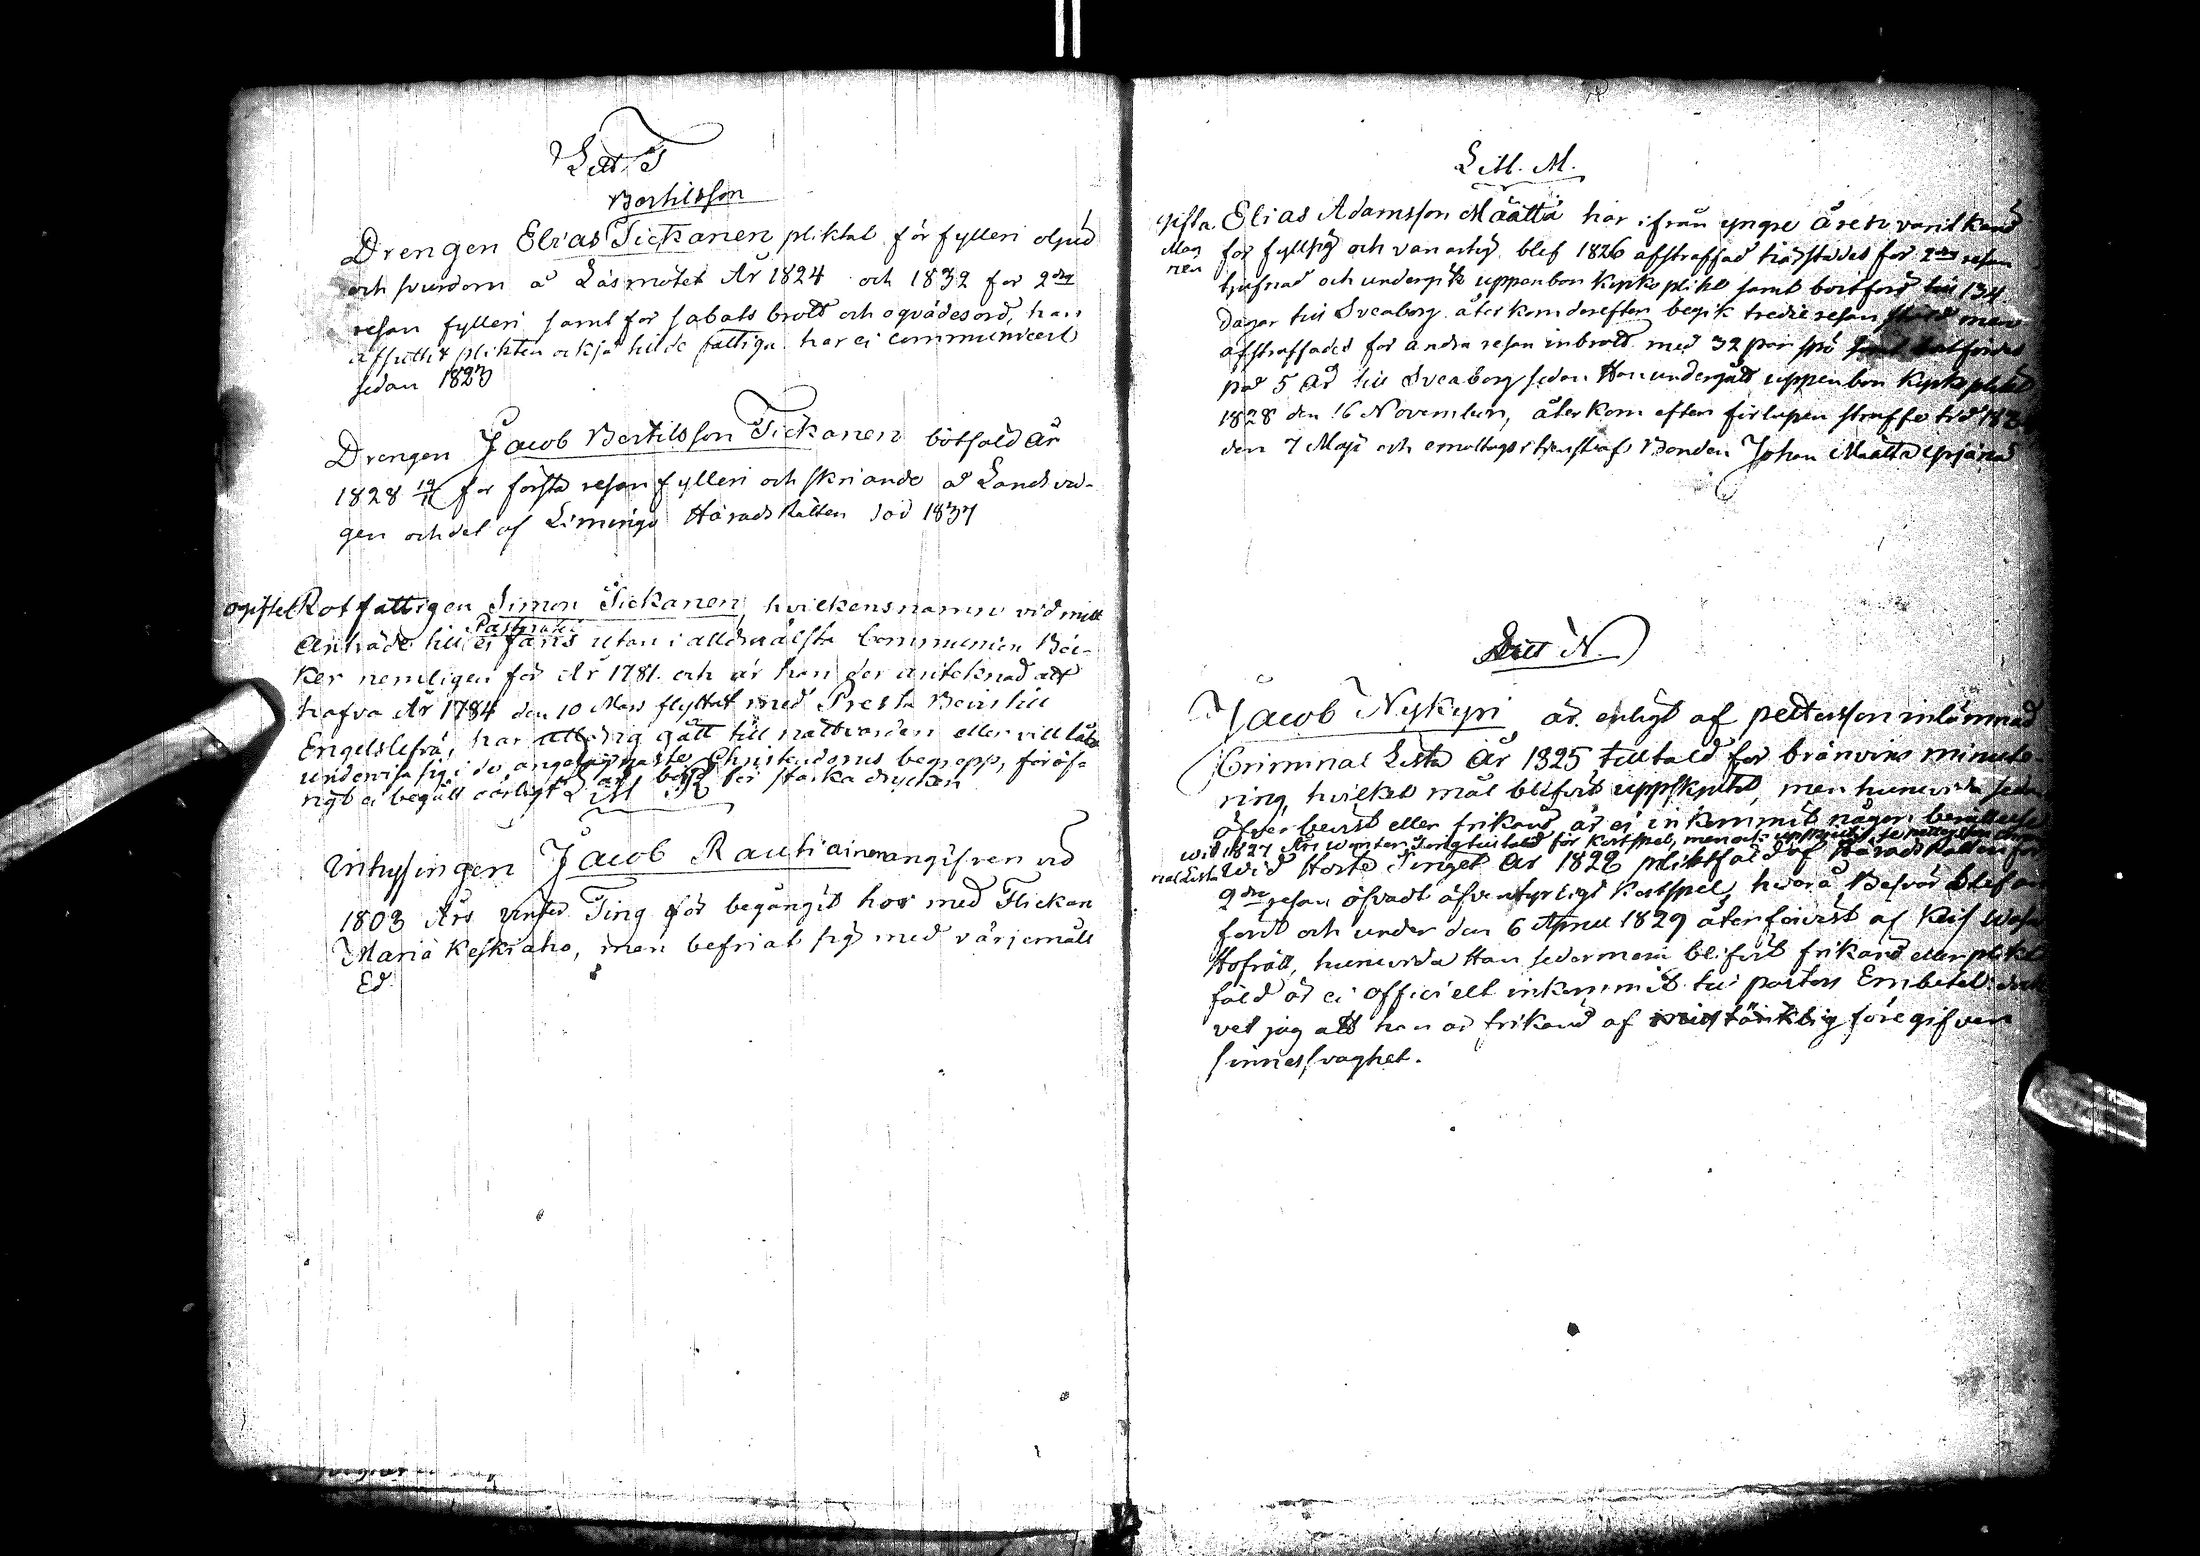 Litt. T
Bertilsson
Drengen Elias Tickanen pliktat för fylleri oljud
och svordom å Läsmötet År 1824 och 1832 for 2dra
resan fylleri samt for sabats brott och oqvädesord, han
plikten också till de fattiga. har ei communicerat
sedan 1823
Drengen Jacob Bertilsson Tickanen botfäld År
1828 19/11 for första resan fylleri och skriande å Landsvä-
gen och det af Limingo Härads Rätten död 1837
ogifte Rotfattigen Simon Tickanen, hvilkens namn vid mitt
Pastoratet
Anträde till ei fans utan i alldraälsta Communion Böc-
ker nemligen för År 1781. och är han der antecknad att
hafva År 1784 den 10 Mars flyttat med Presta Bevis till
har alldrig gått till nattvarden eller vill låta
undervisa sig i de angelägnaste Christendoms begrepp, föröf-
rigt ei begått
starka drycken
Litt R
Inhysingen Jacob Rautiainen angifven vid
1803 Års vinter Ting för begångit hor med Flickan
Maria Keskiaho, men befriat sig med värjemåls
Ed.
Litt. M.
gifta Elias Adamsson Määttä har ifrån yngre åren varit känd
Man
nen
för fyllsig och vanartig blef 1826 afstraffad härstädes för 2dra resan
tjufnad och undergick uppenbar kyrkoplikt samt bortförd till 134
dagar till Sveaborg. återkom derefter begik tredie resan
afstraffades for andra resan inbrott med 32 par spö
på 5 år till Sveaborg sedan Han undergått uppenbar kyrkoplikt
1828 den 16 November, återkom efter förlupen straffe tid
den 7 Maji och emottogs i tjenst af Bonden Johan Määttä
Litt N.
Jacob Nykyri är enligt af pettersson inlämnad
Criminal Lista År 1825 tilltald for bränvins minute-
ring, hvilket mål blifvit uppskutit, men huruvida
öfverbevist eller frikänd är ei inkommit någon berättelse
Wid 1827 Års Winter Ting tilltald för kortspel, men
nal Lista Wid Höste Tinget År 1828 pliktfäld af Härads Rätten för
2dra resan öfvadt äfventyrligt Kortspel, hvarå Besvär blef an-
ford och under den 6 April 1829 återförvist af Keis Wasa
Hofrätt, huruvida Han sedermera blifvit frikänd eller plikt
fäld är ei officielt inkommit till pastors Embetet: dock
vet jag att han är frikänd af misstänklig föregifven
sinnessvaghet.